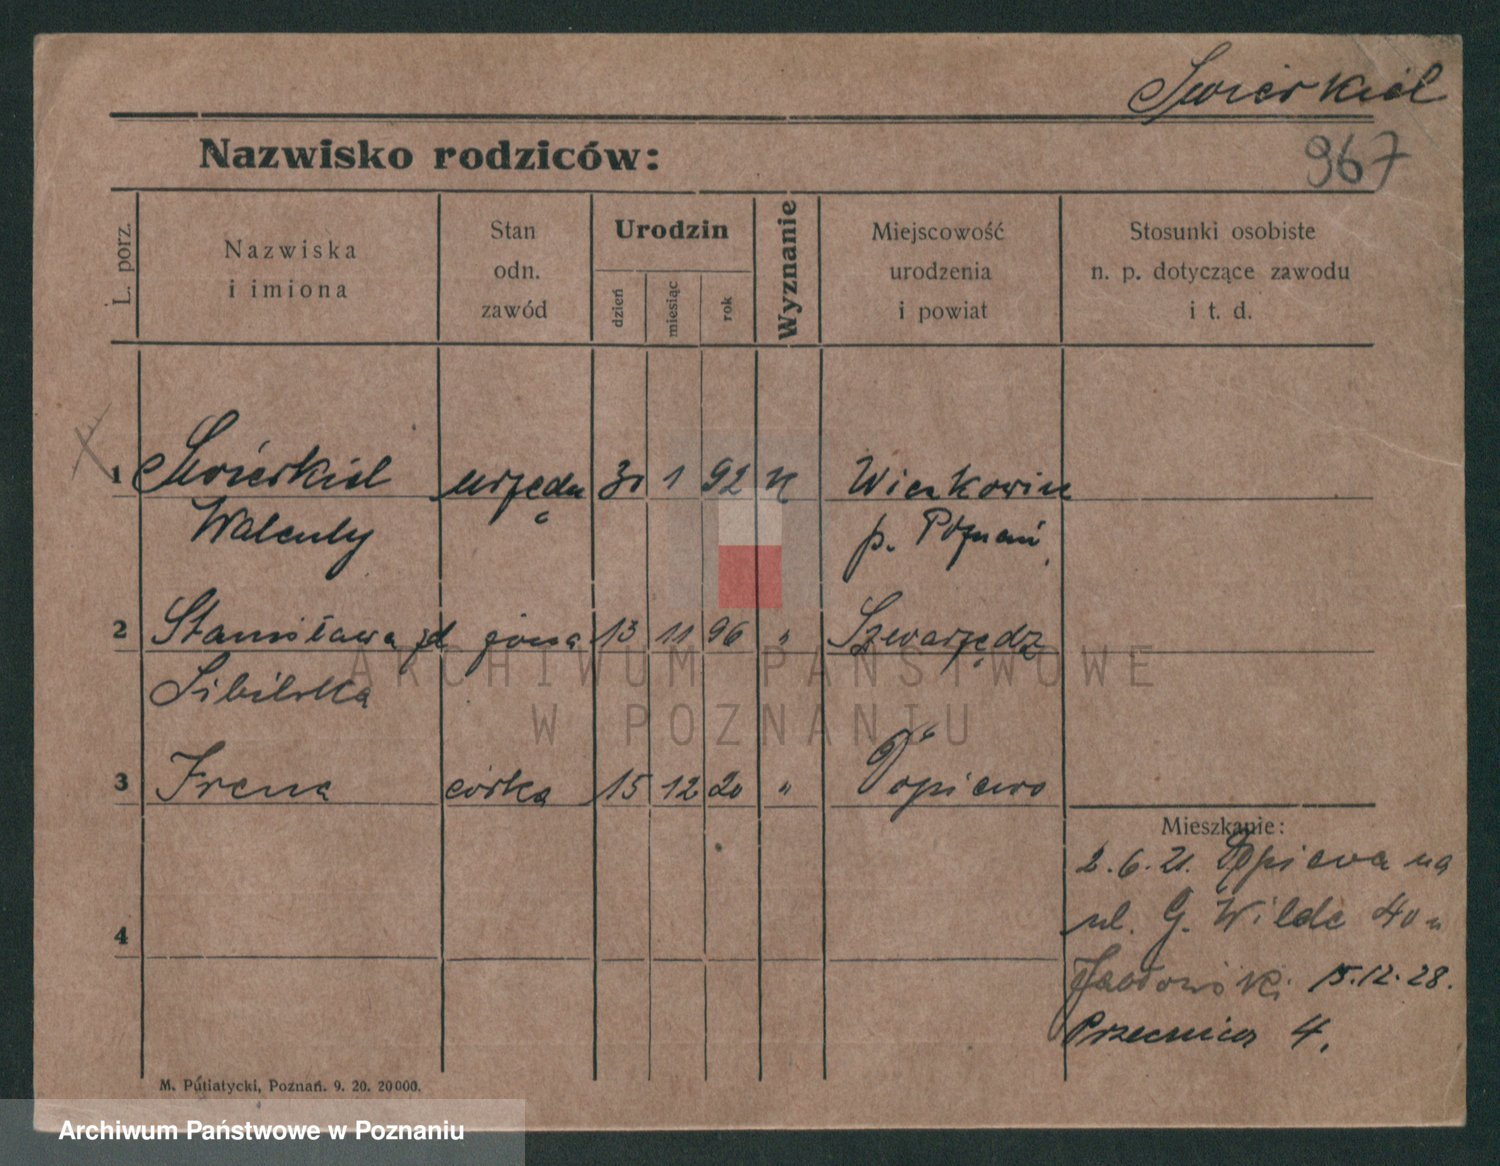 Swierkiel
967
Nazwisko rodziców:
L. porz.
Nazwiska
i imiona
Stan
odn.
zawód
Urodzin
dzień
miesiąc
rok
Wyznanie
Miejscowość
urodzenia
i powiat
Stosunki osobiste
n. p. dotyczące zawodu
i t. d.
1 Swierkiel urzędn 30 1 92 k Wieckowice
Walenty p. Poznań
2 Stanisława zd żona 13 11 96 " Szwarzędz
Sibilska
3 Irena córka 15 12 20 " Dopiewo
Mieszkanie:
2.6.21. Dopiewa na
ul. G. Wilda 40 u
15.12.28.
4
Przecznica 4.
M. Putiatycki, Poznań. 9. 20. 20000.
ARCHIWUM PAŃSTWOWE
W POZNANIU
Archiwum Państwowe w Poznaniu